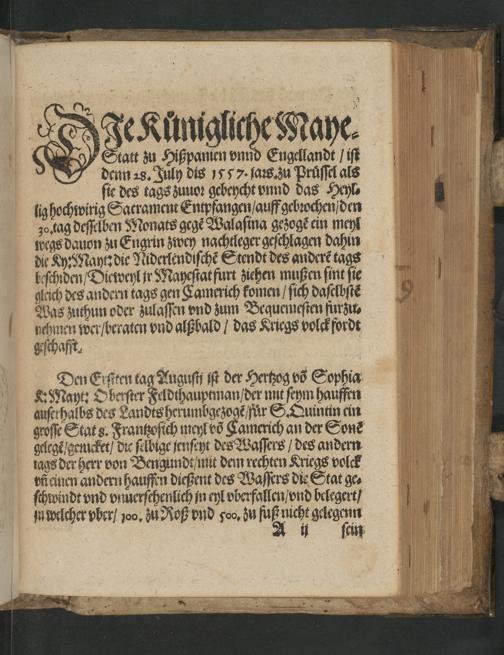 DIe Künigliche Maye-
Statt zu Hißpanien vnnd Engellandt / ist
denn 28. July dis 1557. jars. zu Prüssel als
sie des tags zuuor gebeycht vnnd das Heyl-
lig hochwirig Sacrament Entpfangen / auff gebrochen / den
30. tag desselben Monats gegē Walasina gezogē ein meyl
wegs dauon zu Engrin zwey nachtleger geschlagen dahin
die Ky: Mayt: die Niderlendischē Stendt des anderē tags
beschiden / Dieweyl jr Mayestat furt ziehen mußen sint sie
gleich des andern tags gen Camerich komen / sich daselbstē
Was zuthun oder zulassen vnd zum Bequemesten furzu-
nehmen wer / beraten vnd alßbald / das Kriegs volck fordt
geschafft.
Den Ersten tag Augusti ist der Hertzog vō Sophia
K: Mayt: Oberster Feldthauptman / der mit seym hauffen
auserhalbs des Landts herumbgezogē / für S. Quintin ein
grosse Stat 8. Frantzosisch meyl vō Camerich an der Sonē
gelegē / gerucket / die selbige jenseyt des Wassers / des andern
tags der herr von Bengundt / mit dem rechten Kriegs volck
vn̄ einen andern hauffen dießent des Wassers die Stat ge-
schwindt vnd vnuersehenlich in eyl vberfallen / vnd belegert /
in welcher vber / 100. zu Roß vnd 500. zu fuß nicht gelegenn
A ij sein